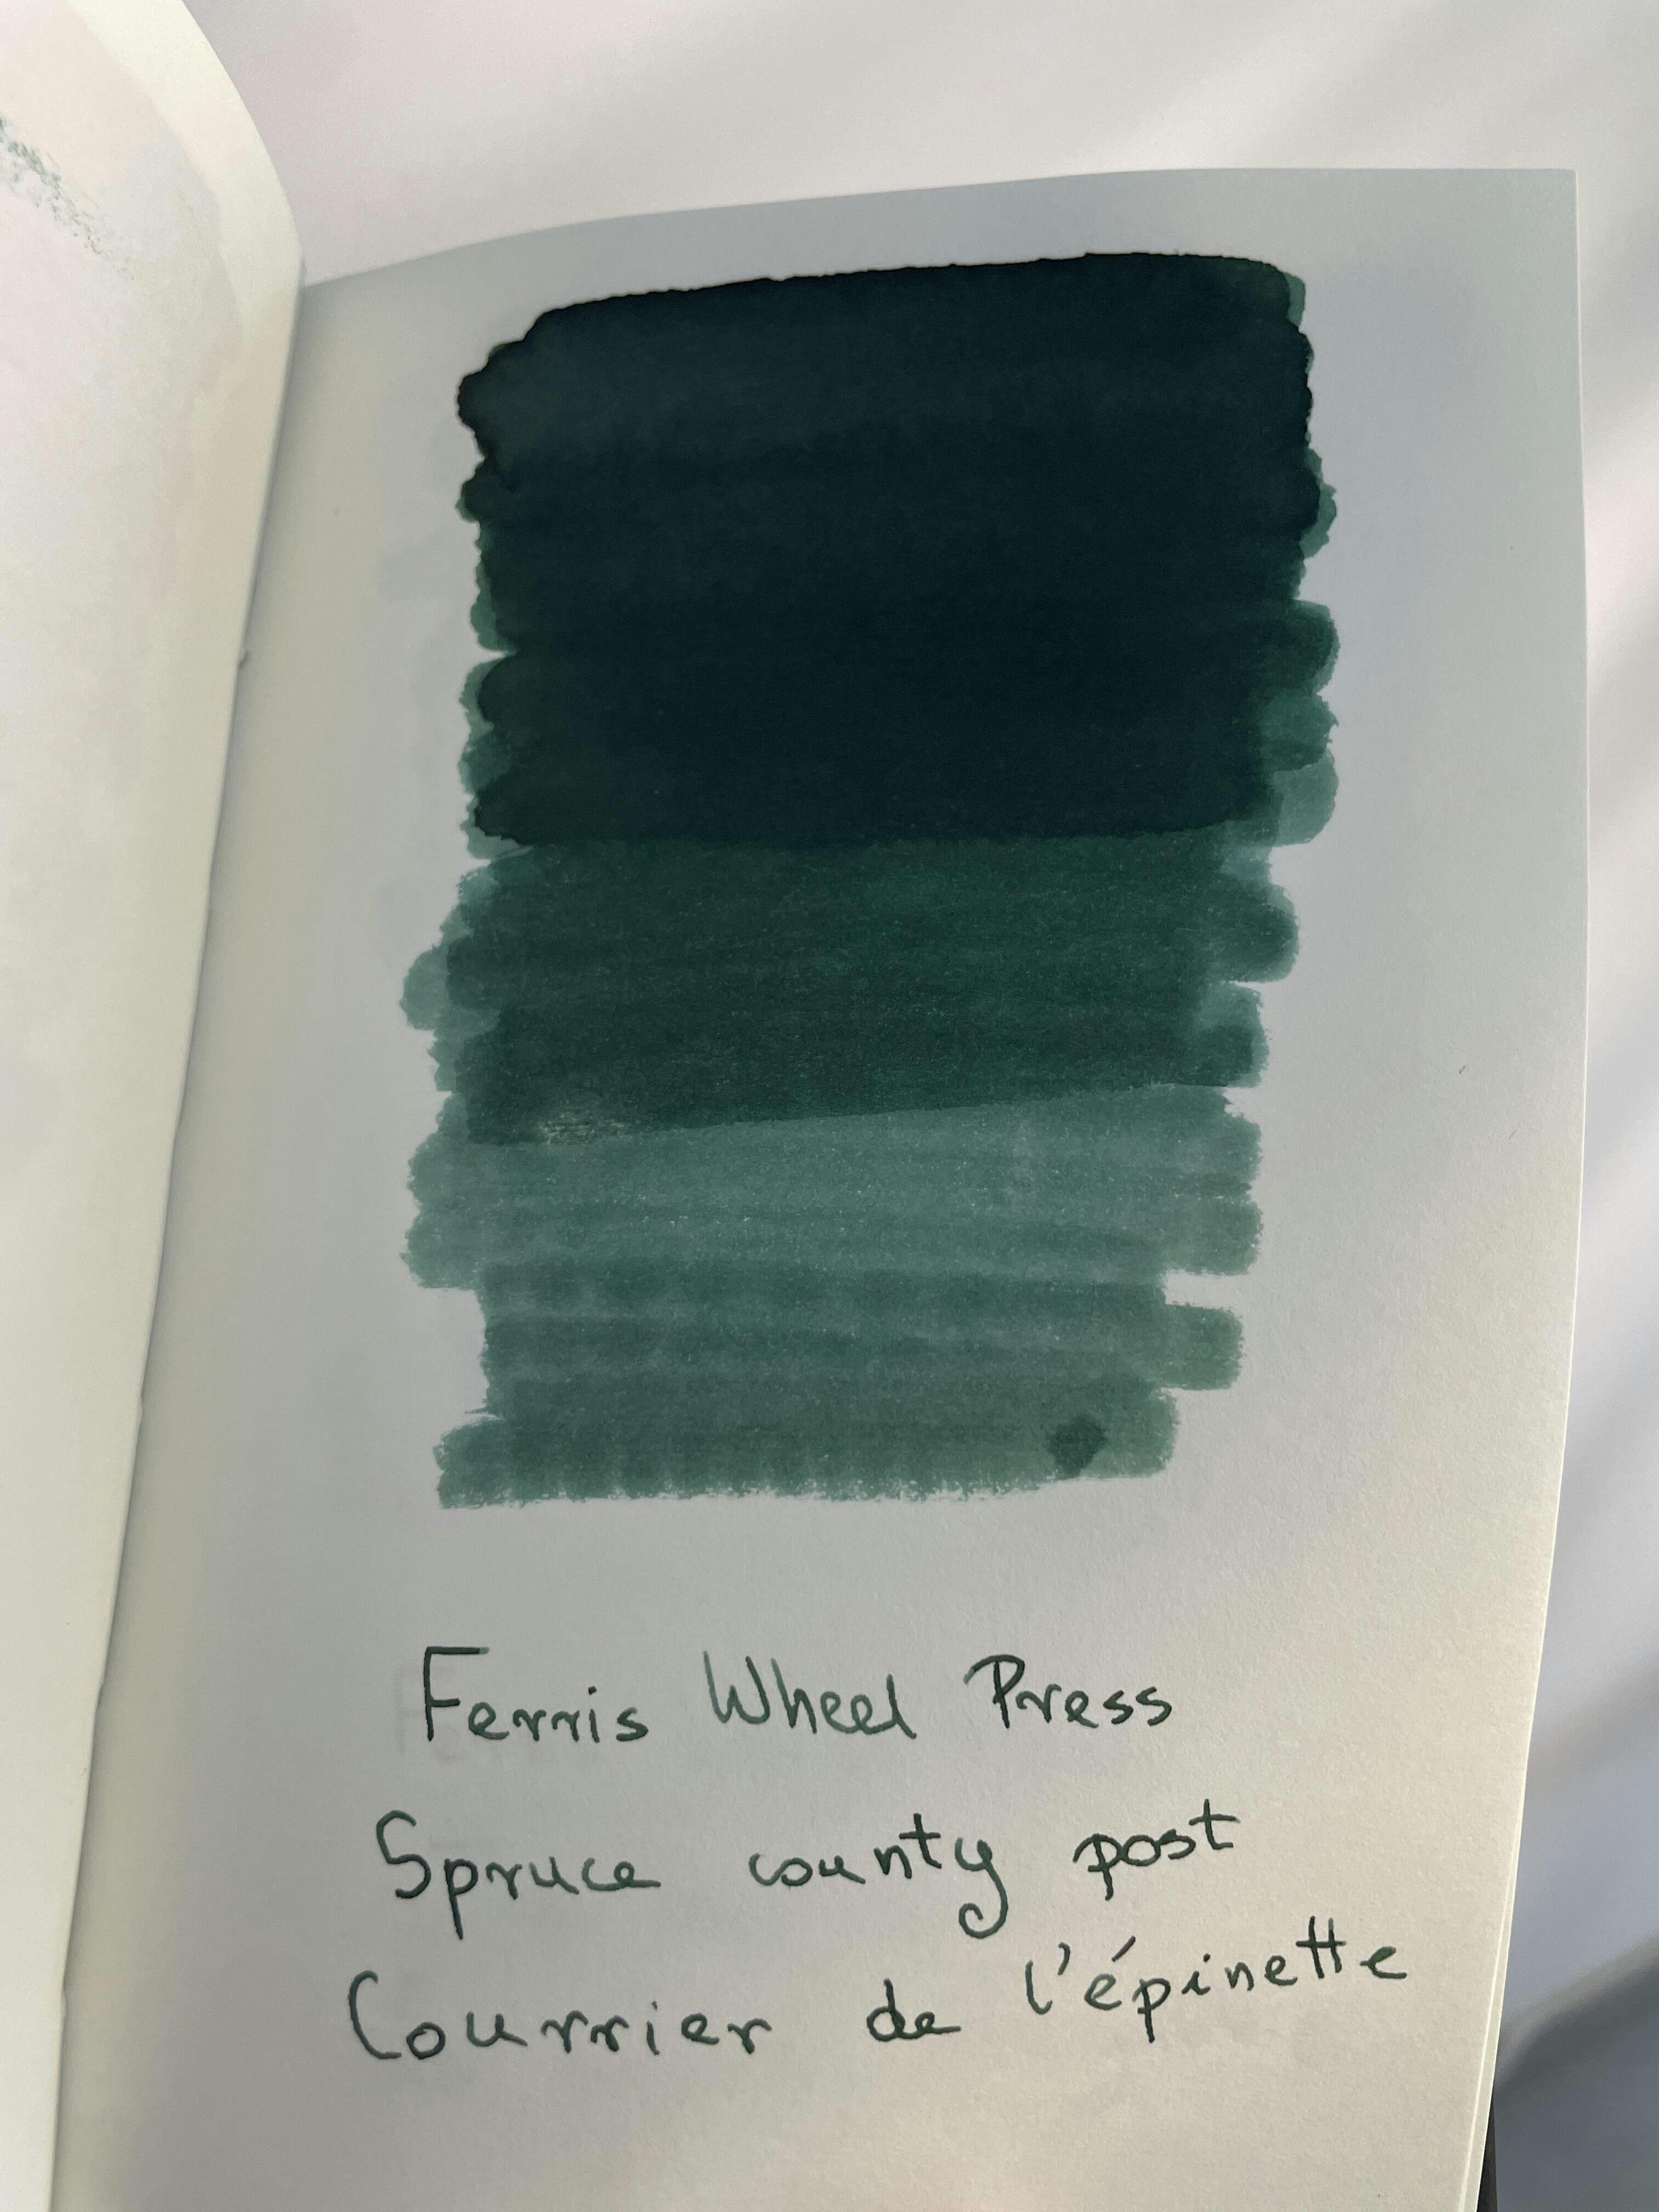 Ferris Wheel Press
Spruce county post
Courrier de l'épinette